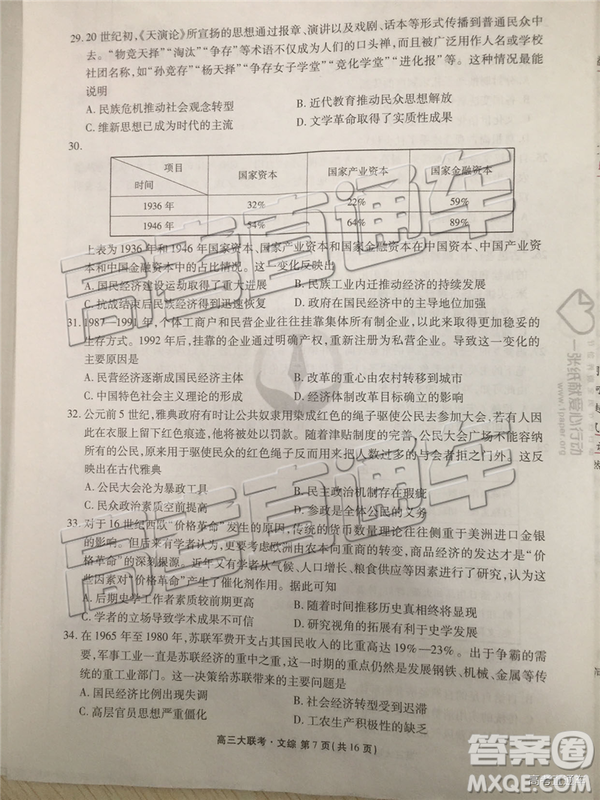 29. 20 世纪初，《天演论》所宣扬的思想通过报章、演讲以及戏剧、话本等形式传播到普通民众中
去。“物竞天择”“淘汰”“争存”等术语不仅成为人们的口头禅，而且被广泛用作人名、学校或
社团名称，如“孙竞存”“杨天择”“争存女子学堂”“竞化学堂”“进化报”等。这种情况最能
说明
A. 民族危机推动社会观念转型 B. 近代教育推动民众思想解放
C. 维新思想已成为时代的主流 D. 文学革命取得了实质性成果
30.
项目 国家资本 国家产业资本 国家金融资本
时间
1936 年 32% 22% 59%
1946 年 54% 64% 89%
上表为 1936 年和 1946 年国家资本、国家产业资本和国家金融资本在中国资本、中国产业资
本和中国金融资本中的占比情况。这一变化反映出
A. 国民经济建设运动取得了重大进展 B. 民族工业内迁推动经济的持续发展
C. 抗战结束后国民经济得到迅速恢复 D. 政府在国民经济中的主导作用增强
31. 1987—1991 年，个体工商户和民营企业往往挂靠集体所有制机构，以争取发展的稳定与
便利。1992 年后，挂靠的企业通过明确产权，重新注册为私营企业。导致这一变化的
主要原因是
A. 民营经济逐渐成国民经济主体 B. 改革的重心由农村转移到城市
C. 中国特色社会主义理论的形成 D. 经济体制改革目标的确立
32. 公元前 5 世纪，雅典政府有时让公共奴隶用染成红色的绳子驱使公民去参加大会，若有人因
此在衣服上留下红色痕迹，他将被处以罚款。随着津贴制度的完善，公民大会广场不能容纳
所有的公民，原来用于驱使民众的红色绳子反而用来把人数过多的与会者拒之门外。这反
映出在古代雅典
A. 公民大会沦为暴政工具 B. 民主政治机制存在瑕疵
C. 民众政治素质空前提高 D. 参政是全体公民的义务
33. 对于 16 世纪西欧“价格革命”发生的原因，传统的货币数量理论往往侧重于美洲进口金银
的影响。但后来有学者提出欧洲由农本向重商的转变，商品经济的发达才是“价
格革命”的深刻根源。近年又有学者从天灾、人口增长、粮食供应等因素进行了研究，认为这
些因素对“价格革命”产生了催化剂作用。据此可知
A. 后期史学工作者素质较前期更高 B. 随着时间推移历史真相终将显明
C. 学者的立场导致学术成果不可信 D. 研究视角的拓展有利于史学发展
34. 在 1965 年至 1980 年，苏联军费开支占其国民收入的比重高达 19%—23%。出于争霸的需
要，军事工业一直是苏联经济的重中之重，这一时期的重点仍然是发展钢铁、机械、金属等传
统工业。这一决策给苏联带来的主要影响是
A. 国民经济比例出现失调 B. 社会经济转型受到迟滞
C. 高层官员思想严重僵化 D. 工农生产积极性的缺失
高三大联考·文综 第 7 页（共 16 页）
高考直通车
高考直通车
高考直通车
一张纸献爱心行动
答案圈
MXQE.COM